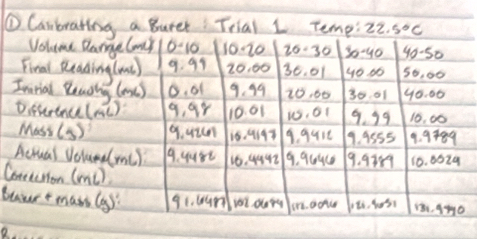 ① Calibrating a Buret: Trial 1 Temp: 22.5°C
Volume Range (mL) 0-10 10-20 20-30 30-40 40-50
Final Reading (mL) 9.99 20.00 30.01 40.00 50.00
Initial Reading (mL) 0.01 9.99 20.00 30.01 40.00
Difference (mL): 9.98 10.01 10.01 9.99 10.00
Mass (g): 9.9412 9.9555 9.9789
Actual Volume (mL): 9.4482 10.4492 9.9646 9.9789 10.0029
Correction (mL):
Beaker + mass (g):